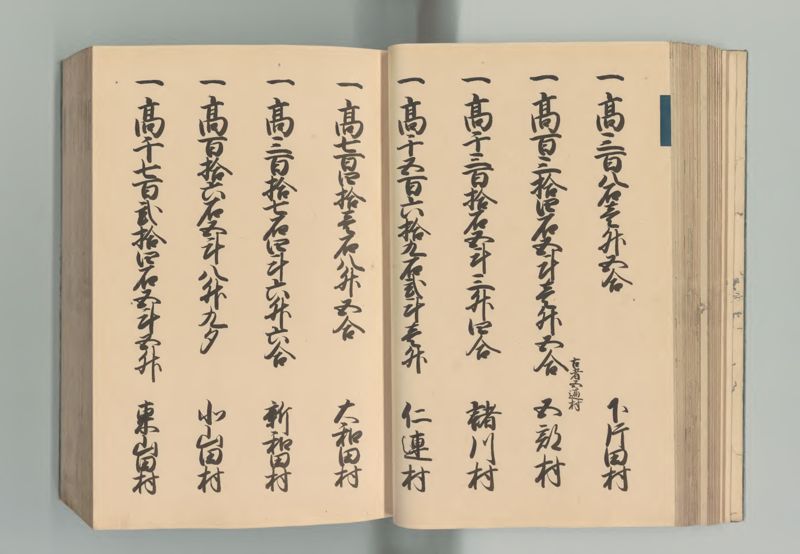 一高三百八石壱升五合 下片田村
一高百三拾四石五斗壱升五合 古者五通村 五部村
一高千三百拾石五斗三升四合 諸川村
一高千五百六拾九石弐斗壱升 仁連村
一高七百四拾壱石八升五合 大和田村
一高三百拾七石四斗六升六合 新和田村
一高百拾六石五斗八升九夕 小山田村
一高千七百弐拾四石五斗五升 東山田村